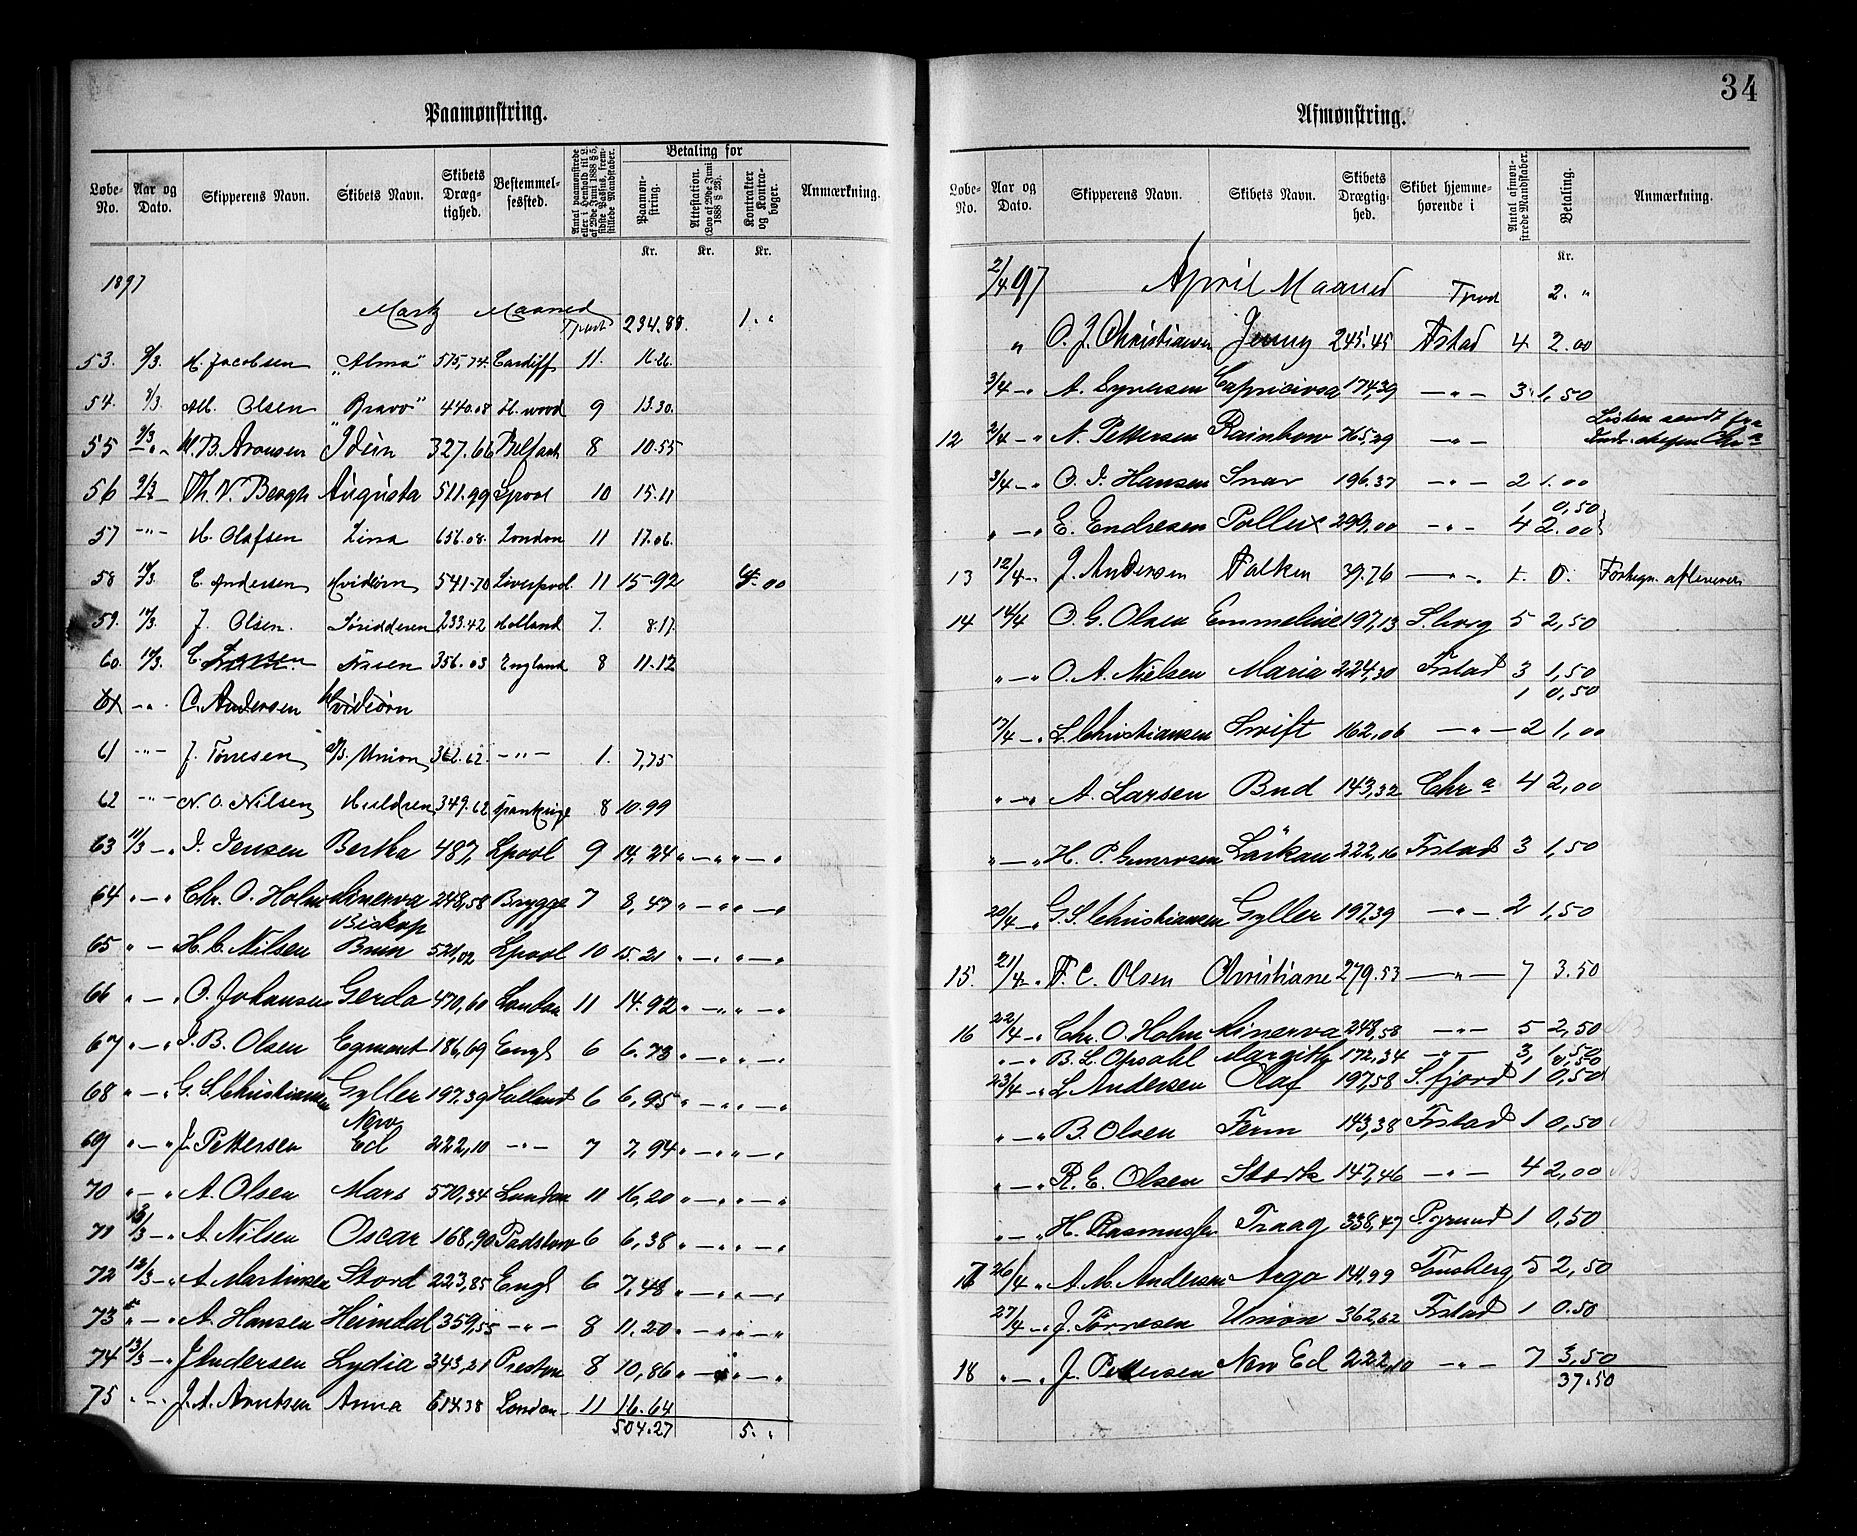 Paamønstring.
Løbe-No. Aar og Dato. Skipperens Navn. Skibets Navn. Skibets Drægtighed. Bestemmelsessted. Betaling for Paamønstring. Attestation. (Lov af 29de Juni 1888 § 23). Kontrakter og Kontrabøger. Anmærkning.
Kr. Kr. Kr.
1897
Martz Maaned
Tpart 234.88. 1. "
53. 9/3. M. Jacobsen "Alma" 575,74. Cardiff 11. 16.26.
54. 9/3. Alb. Olsen "Bravo" 440.08 H.wood 9 13.30.
55 9/3 M. B. Aronsen Idun 327.66 Belfast 8 10.55
56 9/3 Th. V. Bergh Augusta 511.99 Lpool 10 15.11
57 " M. Olafsen Lina 656.08. London 11 17.06.
58 10/3. C. Andersen Hvidørn 541.70 Liverpool 11 15.92 4.00
59. 10/3. J. Olsen. Søridderen 233.42 Holland 7. 8.17.
60. 10/3. C. Larsen Aasen 356.03 England 8 11.12
61 " C. Andersen Hvidørn
61 " J. Tørresen D/S. Union 362.62. " 1. 7,75
62 " N. O. Nilsen Huldren 349.62 8 10.99
63 11/3 - " I. Jensen Bertha 487, Lpool 9 14,24 " - " " - "
64 " - " Chr. O. Holm Minerva 248,58 Brygge 7 8,47 " - " " - "
Biskop
65 " - " H. C. Nilsen Brun 521,02 Lpool 10 15.21 " - " " - "
66 " - " O. Johansen Gerda 470,60 London 11 14.92 " - " " - "
67 " - " I. B. Olsen Egmont 186,69 Engl 6 6.73 " - " " - "
68 " - " G. S. Christiansen Gyller 197.39 Holland 6 6,95 " - " " - "
New
69 " - " J. Pettersen Ed 222,10 - " - 7 7,94 " - " " - "
70 " - " A. Olsen Mars 570,34 London 11 16,20 " - " " - "
71 13/3 - " A. Nilsen Oscar 168,90 Padstow 6 6,38 " - " " - "
72 12/3 - " A. Martinsen Stord 223,85 Engl 6 7,48 " - " " - "
73 " - " A. Hansen Heimdal 359,55 - " - 8 11.20 " - " " - "
74 13/3 - " J. Andersen Lydia 343,21 Preston 8 10,86 " - " " - "
75 " - " J. A. Arntsen Anna 614.38 London 11 16.64
504.27 5. "
34
Afmønstring.
Løbe-No. Aar og Dato. Skipperens Navn. Skibets Navn. Skibets Drægtighed. Skibet hjemmehørende i Antal afmønstrede Mandskaber. Betaling. Anmærkning.
Kr.
2/4 97 April Maaned Tpart 2. "
" O. J. Christiansen Jenny 245.45 Fstad 4 2.00
3/4 - " A. Syversen Capriciosa 174,39 - " - 3 1,50
12 2/4 - " N. Pettersen Rainbow 765,29 - " - Listen sendt fra
3/4 - " O. I. Hansen Snar 196.37 - " - 2 1.00
1 0,50
" - " E. Endresen Pollux 299,00 - " - 4 2.00
13 12/4 - " J. Andersen Falken 39.76 - " - 1. 0.
14 14/4 O. G. Olsen Emmeline 197,13 S.borg 5 2,50
" - " O. A. Nielsen Maria 224,30 Fstad 3 1,50
1 0,50
17/4 - " L. Christiansen Swift 162,06 - " - 2 1,00
" - " A. Larsen Bud 143,32 Chra 4 2,00
" - " H. P. Gunrosen Läskan 222,16 Fstad 3 1,50
20/4 - " G. S. Christiansen Gyller 197,39 - " - 2 1,50
15. 21/4 - " F. C. Olsen Christiane 279.53 - " - 7 3.50
16 22/4 - " Chr. O. Holm Minerva 248,58 - " - 5 2,50
" - " B. L. Opsahl Margith 172,34 - " - 3, 1,50
0,50
23/4 - " L. Andersen Olaf 197,58 S.fjord 1 0,50
" - " B. Olsen Ferm 143,38 Fstad 1 0,50
" - " R. E. Olsen Stork 147,46 - " - 4 2,00
" - " H. Rasmussen Traag 338,47 P.grund 1 0,50
17 26/4 " A. M. Andersen Argo 141,99 Tønsberg 5 2,50
27/4 - " J. Tørresen Union 362,62 Fstad 1 0.50
18 " - " J. Pettersen New Ed 222,10 - " - 7 3,50
37.50